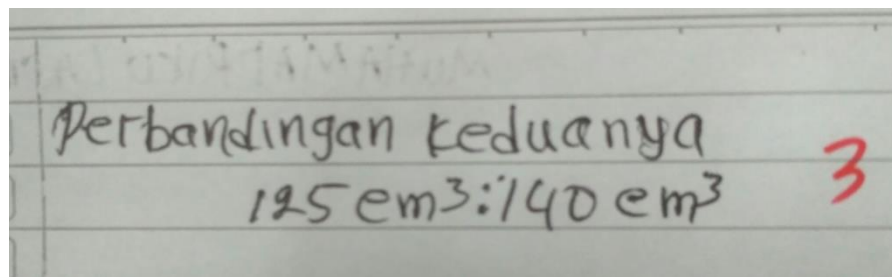 Perbandingan keduanya
125 cm³:140 cm³ 3